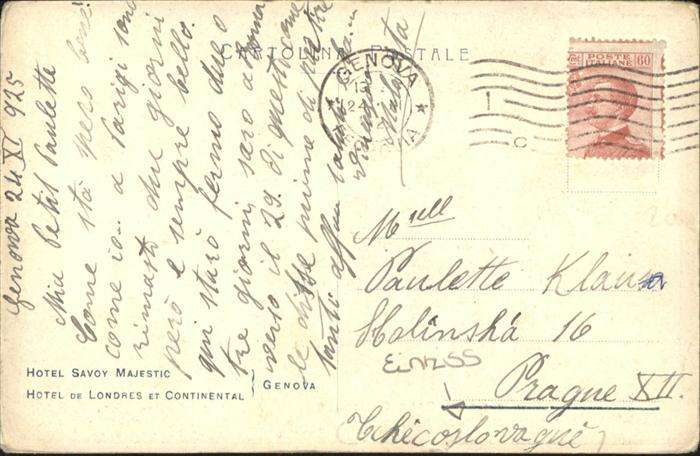 CARTOLINA POSTALE
GENOVA
13
24
POSTE
ITALIANE
60
Genova 24 XI 925
Mia Petit Paulette
Come stà spero bene
come io... a Parigi sono
rimasto due giorni
però è sempre bello.
qui starò fermo due o
tre giorni, sarò a
verso il 29. di questo
le disse prima di
tanti
Mlle
Paulette Klaus
Holinská 16
Prague XII.
Tchécoslovaquie
HOTEL SAVOY MAJESTIC
HOTEL DE LONDRES ET CONTINENTAL
GENOVA